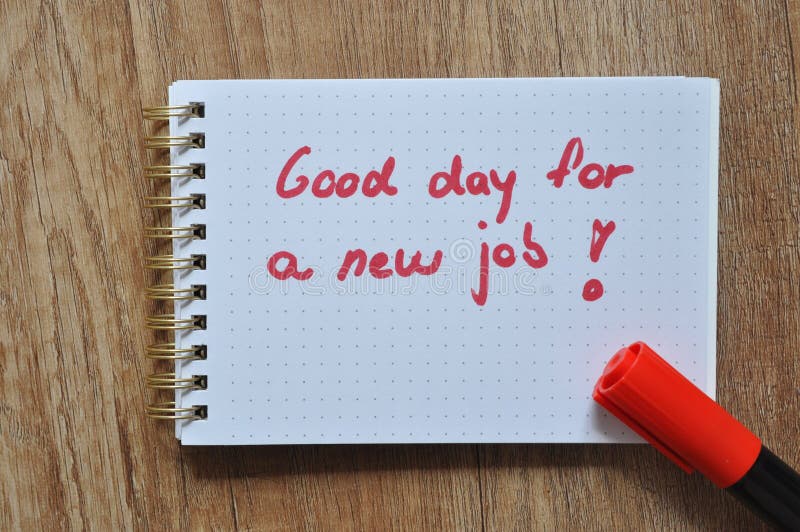 Good day for
a new job !